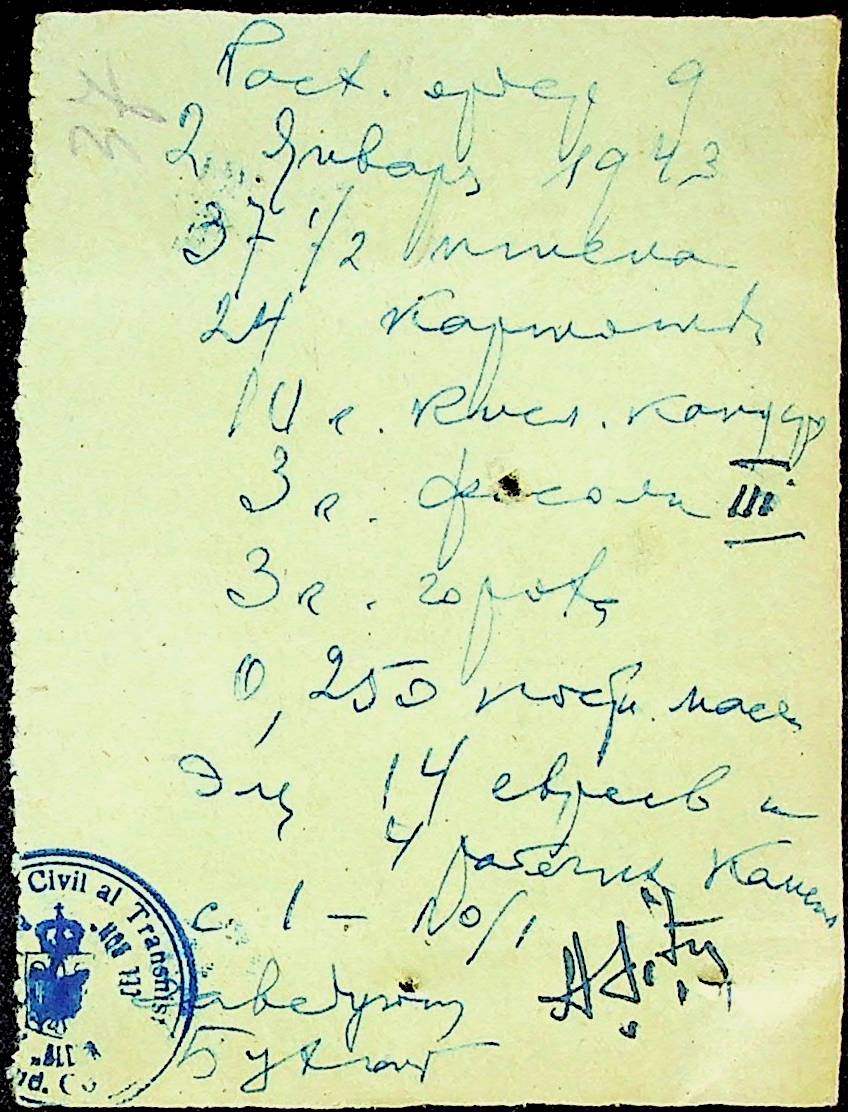 Расх. ордер 9
2 Января 1943
37 1/2 пшена
24 Картошки
10 к. кисл. капуст
3 к. фасоли III
3 к. гороха
0,250 постн. масла
Для 14 евреев и
4 рабочих
с 1 – 10/1
Заведующий
Civil al Transnis